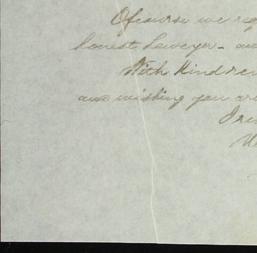 Of course we reg
honest Lawyer - and
With Kind re
and wishing you are
I re